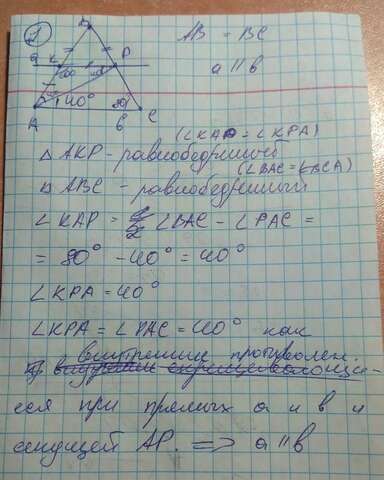 1
B
AB = BC
a
K
P
a || b
40°
80°
A
C
b
(∠KAP = ∠KPA)
△ AKP - равнобедренный
(∠BAC = ∠BCA)
△ ABC - равнобедренный
∠ KAP = ∠ BAC - ∠ PAC =
= 80° - 40° = 40°
∠ KPA = 40°
∠ KPA = ∠ PAC = 40° как
внутренние противолеж.
внутрен скрещивающи-
еся при прямых a и b и
секущей AP. => a || b